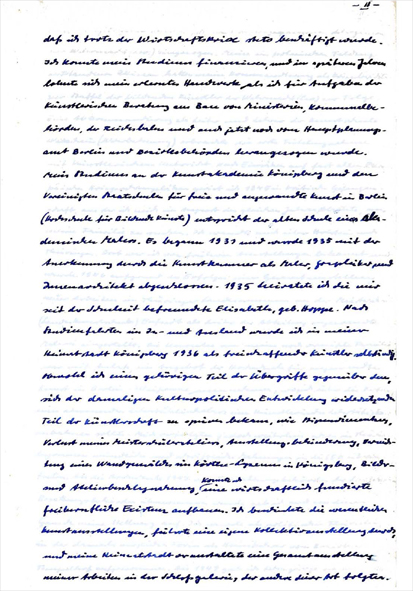 - 11 -
daß ich trotz der Wirtschaftskrise stets beschäftigt wurde.
Ich konnte mein Studium finanzieren, und in späteren Jahren
lohnte sich mein erlerntes Handwerk, als ich für Aufgaben der
künstlerischen Beratung am Bau von Ministerien, Kommunalbe-
hörden, der Reichsbahn und auch jetzt noch vom Hauptplanungs-
amt Berlin und Bezirksbehörden herangezogen wurde.
Mein Studium an der Kunstakademie Königsberg und den
Vereinigten Staatsschulen für freie und angewandte Kunst in Berlin
(Hochschule für Bildende Künste) entspricht der alten Schule eines Aka-
demischen Malers. Es begann 1931 und wurde 1935 mit der
Anerkennung durch die Kunstkammer als Maler, Graphiker und
Innenarchitekt abgeschlossen. 1935 heiratete ich die mir
seit der Schulzeit befreundete Elisabeth, geb. Hoppe. Nach
Studienfahrten im In- und Ausland wurde ich in meiner
Heimatstadt Königsberg 1936 als freischaffender Künstler selbständig.
Obwohl ich einen gehörigen Teil der Übergriffe gegenüber dem,
sich der damaligen kulturpolitischen Entwicklung widersetzenden
Teil der Künstlerschaft zu spüren bekam, wie Stipendienentzug,
Verlust meines Meisterschülerateliers, Ausstellungsbehinderung, Vernich-
tung eines Wandgemäldes im Körte-Lyzeum in Königsberg, Bilder-
und Atelierbeschlagnahmung, konnte ich eine wirtschaftlich fundierte
freiberufliche Existenz aufbauen. Ich beschickte die wesentlichen
Kunstausstellungen, führte eine eigene Kollektivausstellung durch,
und meine Heimatstadt veranstaltete eine Gesamtausstellung
meiner Arbeiten in der Schloßgalerie, der andere dieser Art folgten.